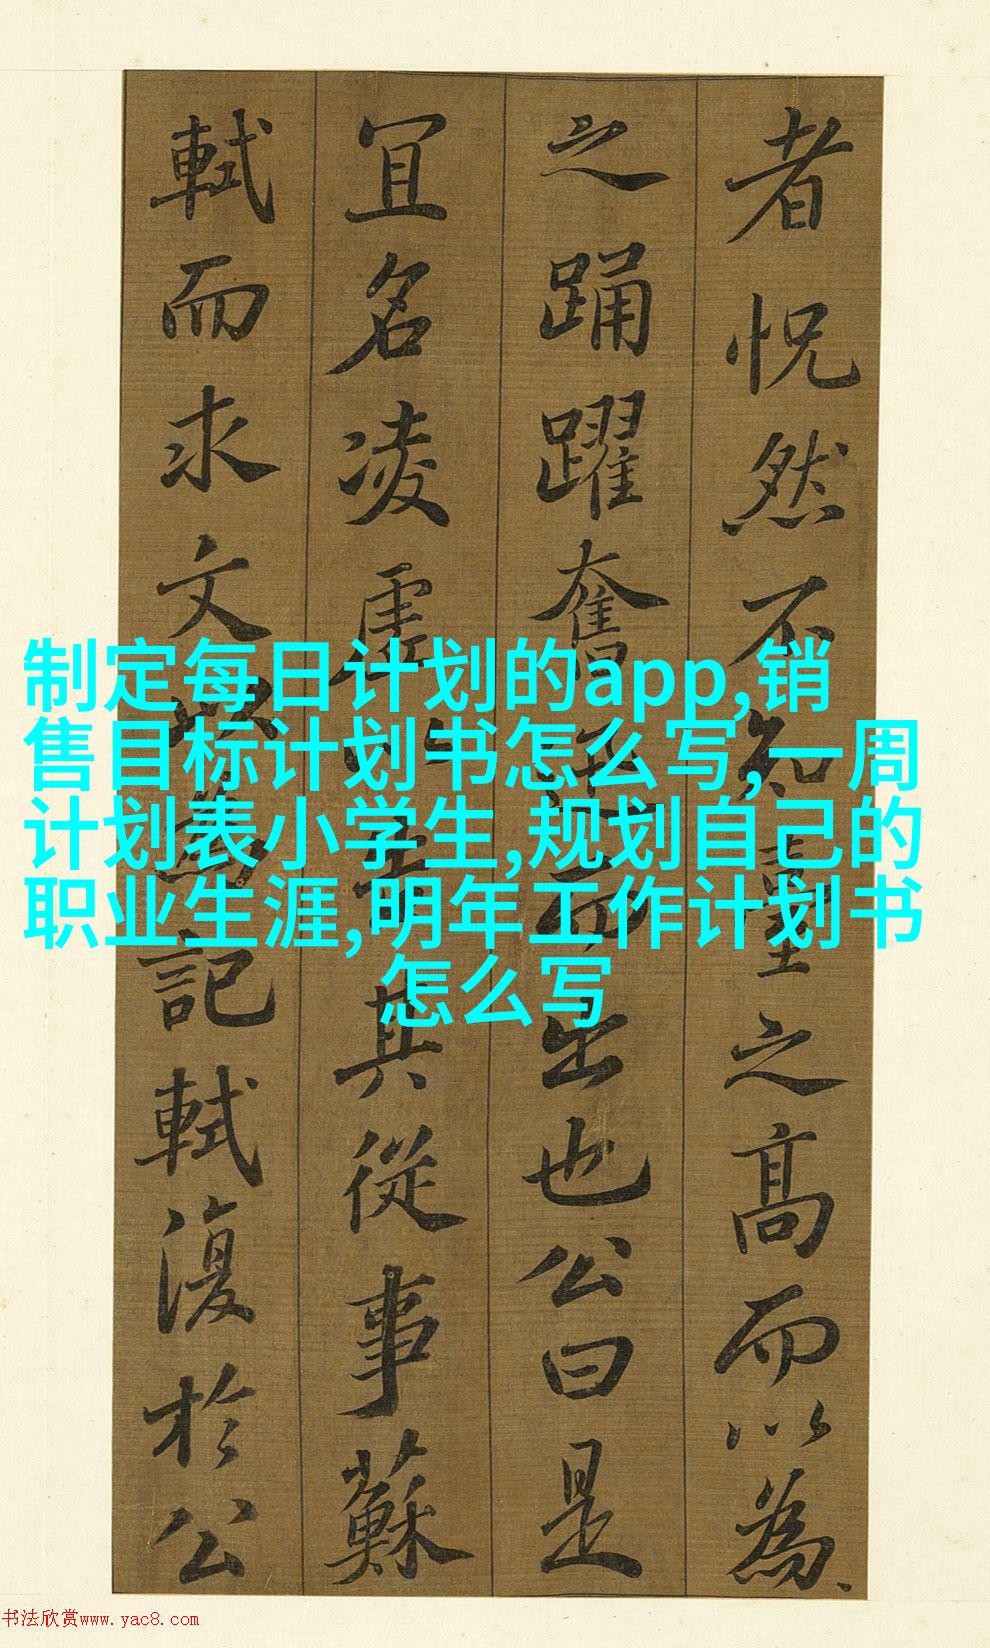 者怳然不知臺之高而以為
之踊躍奮迅而出也公曰是
冝名凌虛以告其從事蘇
軾而求文以為記軾復於公
制定每日计划的app,销
售目标计划书怎么写,一周
计划表小学生,规划自己的
职业生涯,明年工作计划书
怎么写
书法欣赏www.yac8.com